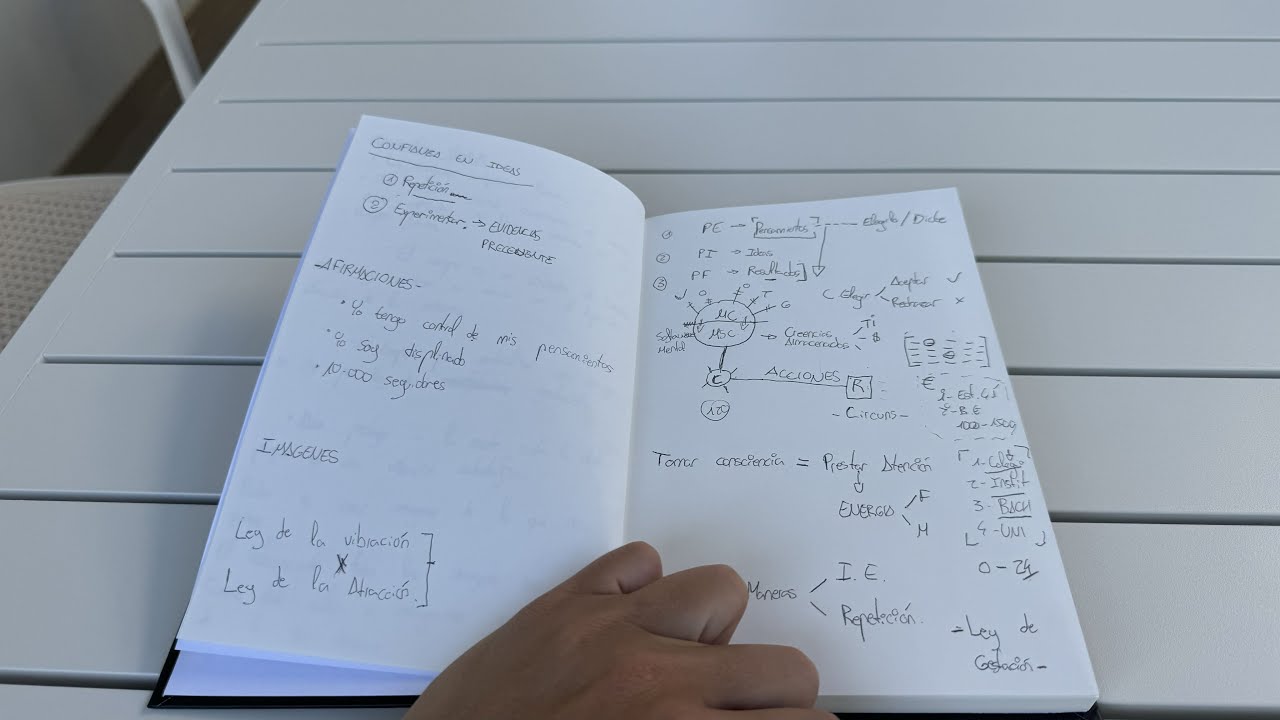 CONFIANZA EN IDEAS
① Repetición
② Experimentar. → EVIDENCIAS
PRECEDENTE
AFIRMACIONES-
• Yo tengo control de mis pensamientos
• Yo soy displinado
• 10.000 seguidores
IMAGENES
Ley de la vibración
X
Ley de la Atracción.
① PE → [Pensamientos] --- Elegirlo / Dicte
② PI → Ideas
③ PF → Resultados]
C. Elegir
Aceptar ✓
Rechazar ×
J O O T G
MC
MSC
Software
Mental
→ Creencias
Almacenadas
Ti
$
ACCIONES
R
- Circuns -
€
1000-1500
Tomar consciencia = Prestar Atención
ENERGIA
F
M
1- Colegio
2- Instit
3- BACH
4- UNI
0-24
Maneras
I.E.
Repetición.
- Ley de
Gestación -